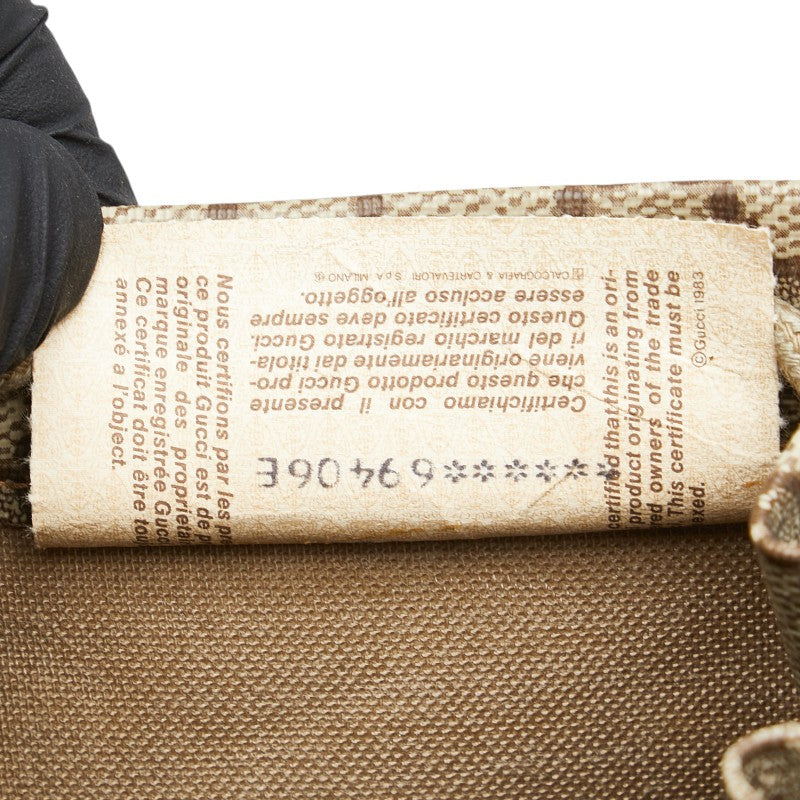 Nous certifions par les pré
ce produit Gucci est de p
originale des propriétai
marque enregistrée Gucc
Ce certificat doit être tou
annexé a l'object.
*******69406E
Certifichiamo con il presente
che questo prodotto Gucci pro-
viene originariamente dai titola-
ri del marchio registrato Gucci.
Questo certificato deve sempre
essere accluso all'oggetto.
CALCOGRAFIA & CARTEVALORI S.p.A. MILANO
certified that this is an ori-
product originating from
red owners of the trade
. This certificate must be
exed.
©Gucci 1983